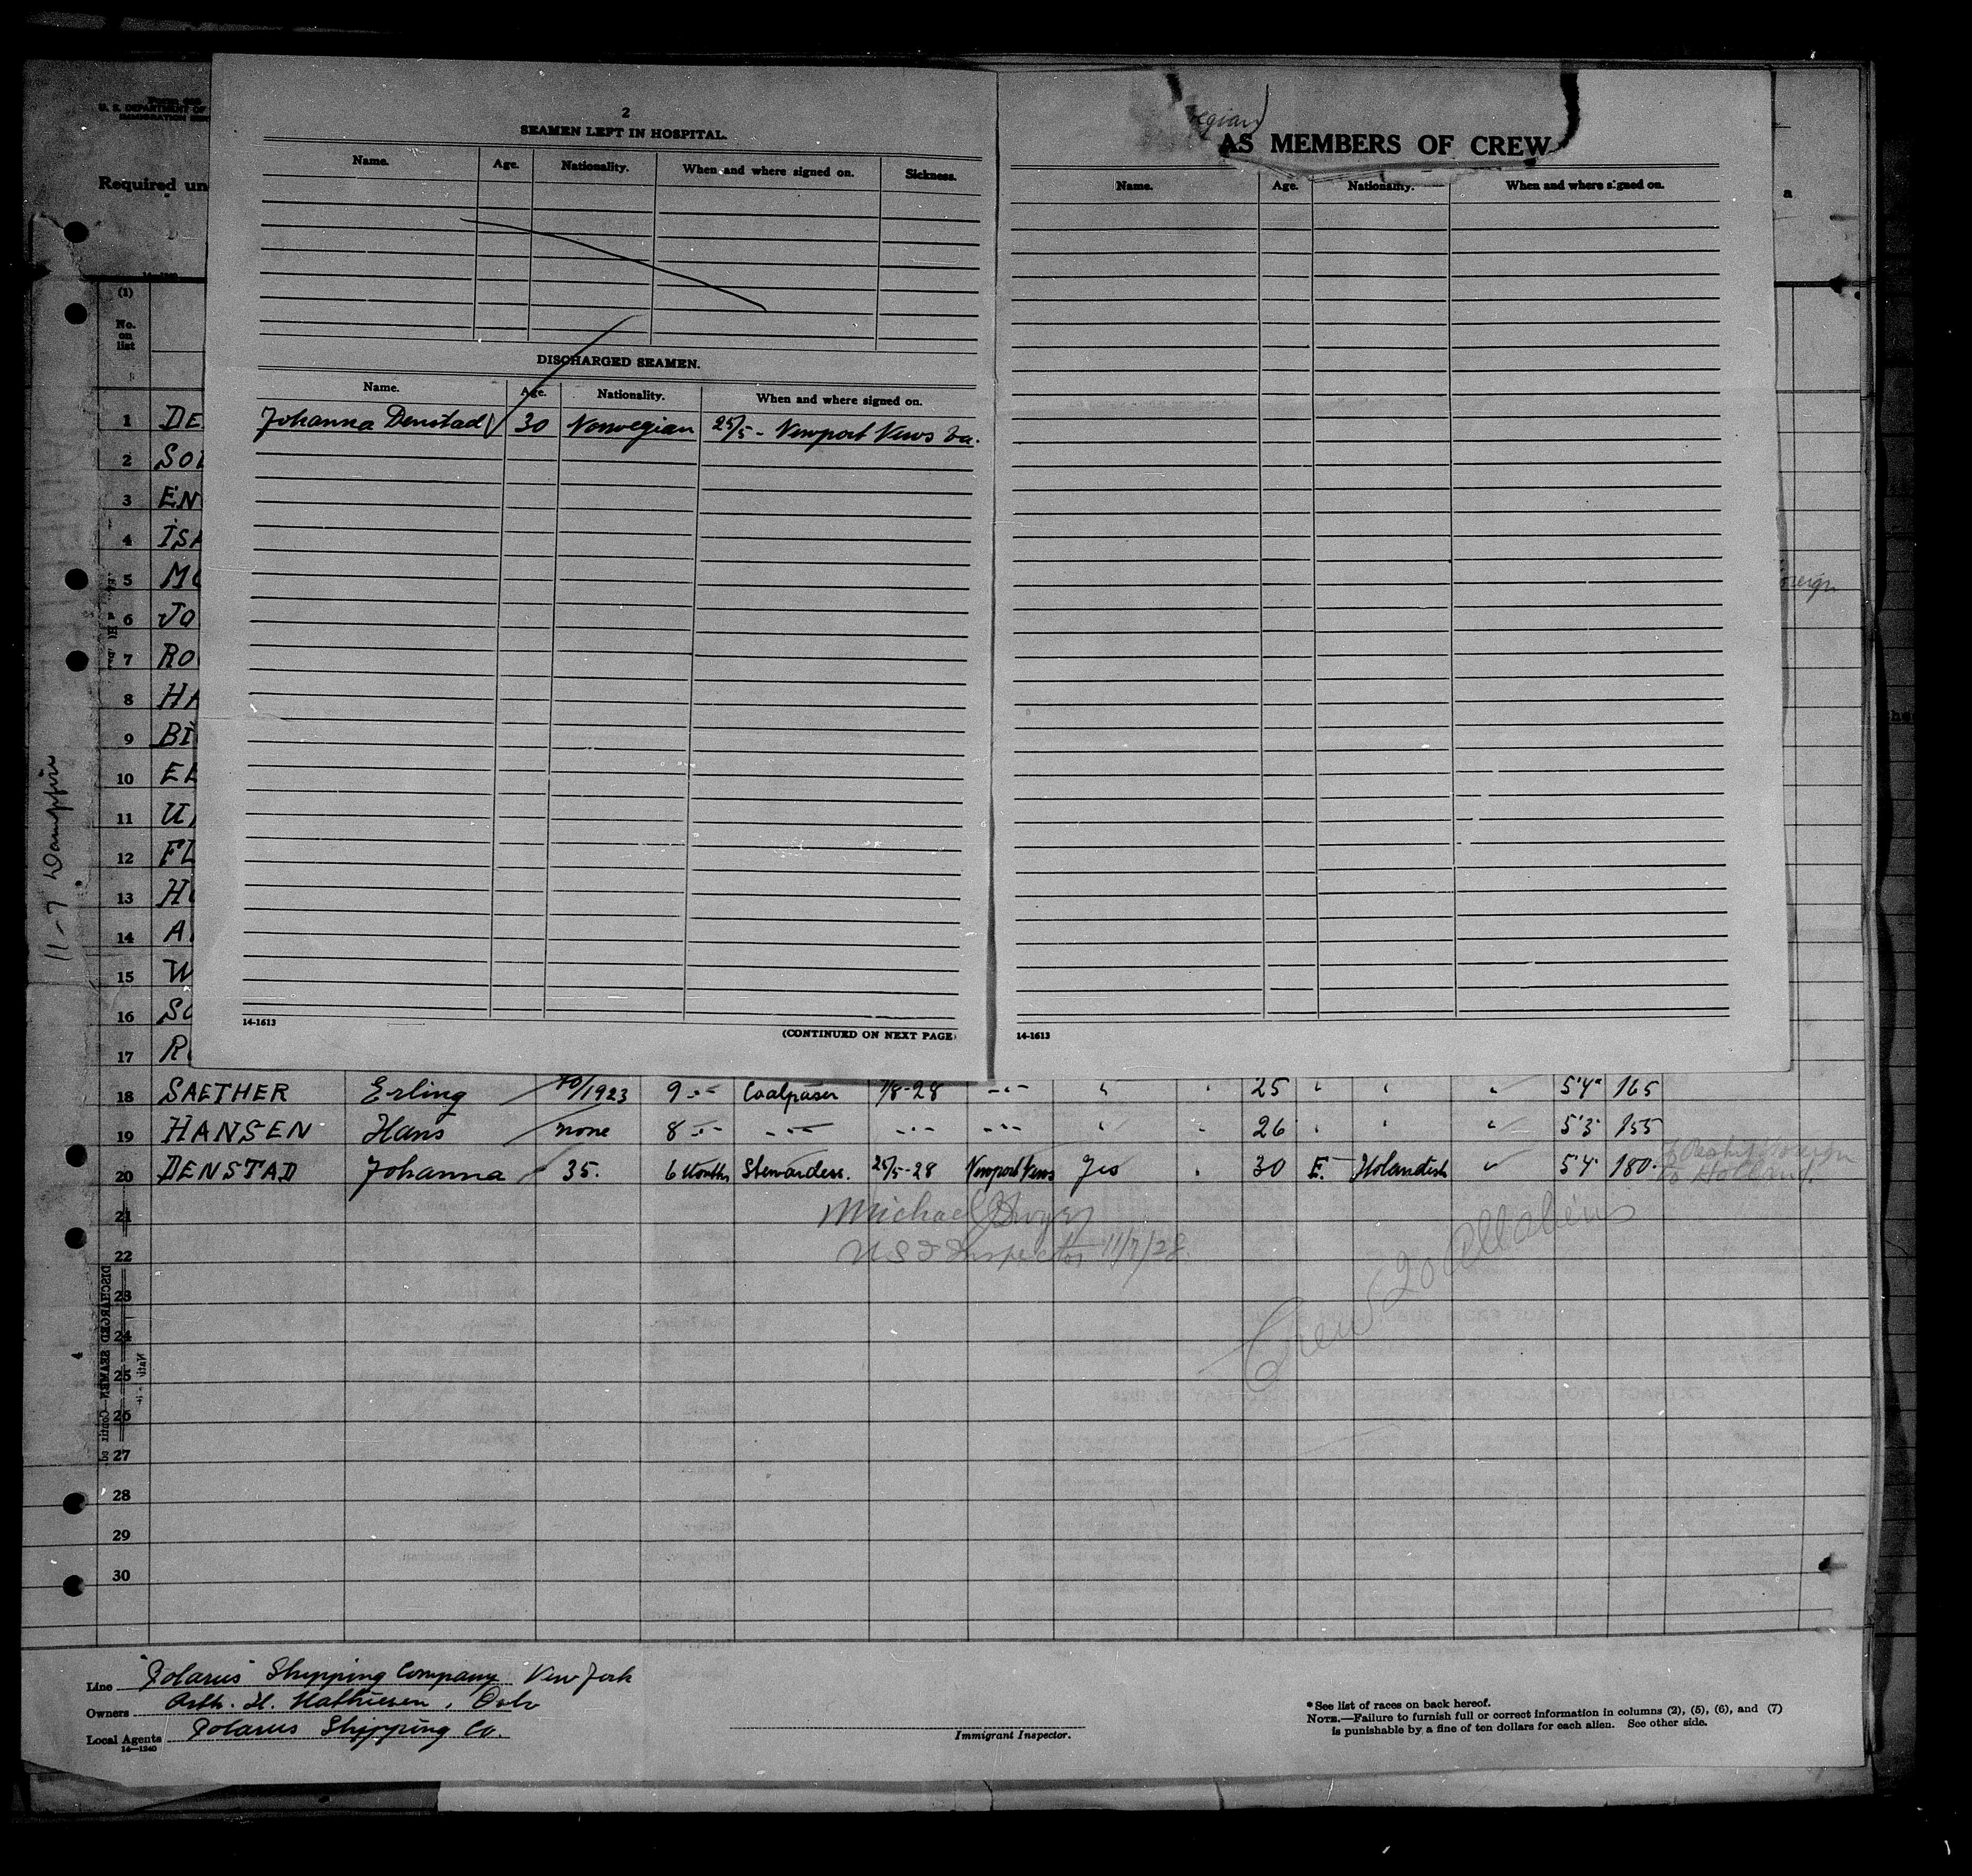 2
SEAMEN LEFT IN HOSPITAL.
Name. Age. Nationality. When and where signed on. Sickness.
DISCHARGED SEAMEN.
Name. Age. Nationality. When and where signed on.
Johanna Denstad 30 Norwegian 25/5 - Newport News Va.
14-1613 (CONTINUED ON NEXT PAGE)
AS MEMBERS OF CREW
Name. Age. Nationality. When and where signed on.
14-1613
U. S. DEPARTMENT OF
Required un
(1)
No. on list
1 DE
2 SOL
3 EN
4 ISA
5 MO
6 JO
7 RO
8 HA
9 BI
10
11
12 FL
13
14 A
15 W
16 SO
17 R
18 SAETHER Erling 10/1923 9 -"- Coalpaser 7/8-28 -"- " " 25 " " " 5'4" 165
19 HANSEN Hans none 8 -"- -"- -"- -"- " " 26 " " " 5'3" 155
20 DENSTAD Johanna 35. 6 Months Stewardess. 25/5-28 Newport News Yes " 30 F. Holandish " 5'4" 180. to Holland.
21
22
23
24
25
26
27
28
29
30
U S I Inspector 11/7/28
Crew 20 All aliens
DISCHARGED SEAMEN
11-7
Line "Polarus" Shipping Company New York
Owners Arth. H. Mathiesen, Oslo
Local Agents Polarus Shipping Co.
14-1240
Immigrant Inspector.
*See list of races on back hereof.
NOTE.—Failure to furnish full or correct information in columns (2), (5), (6), and (7)
is punishable by a fine of ten dollars for each alien. See other side.